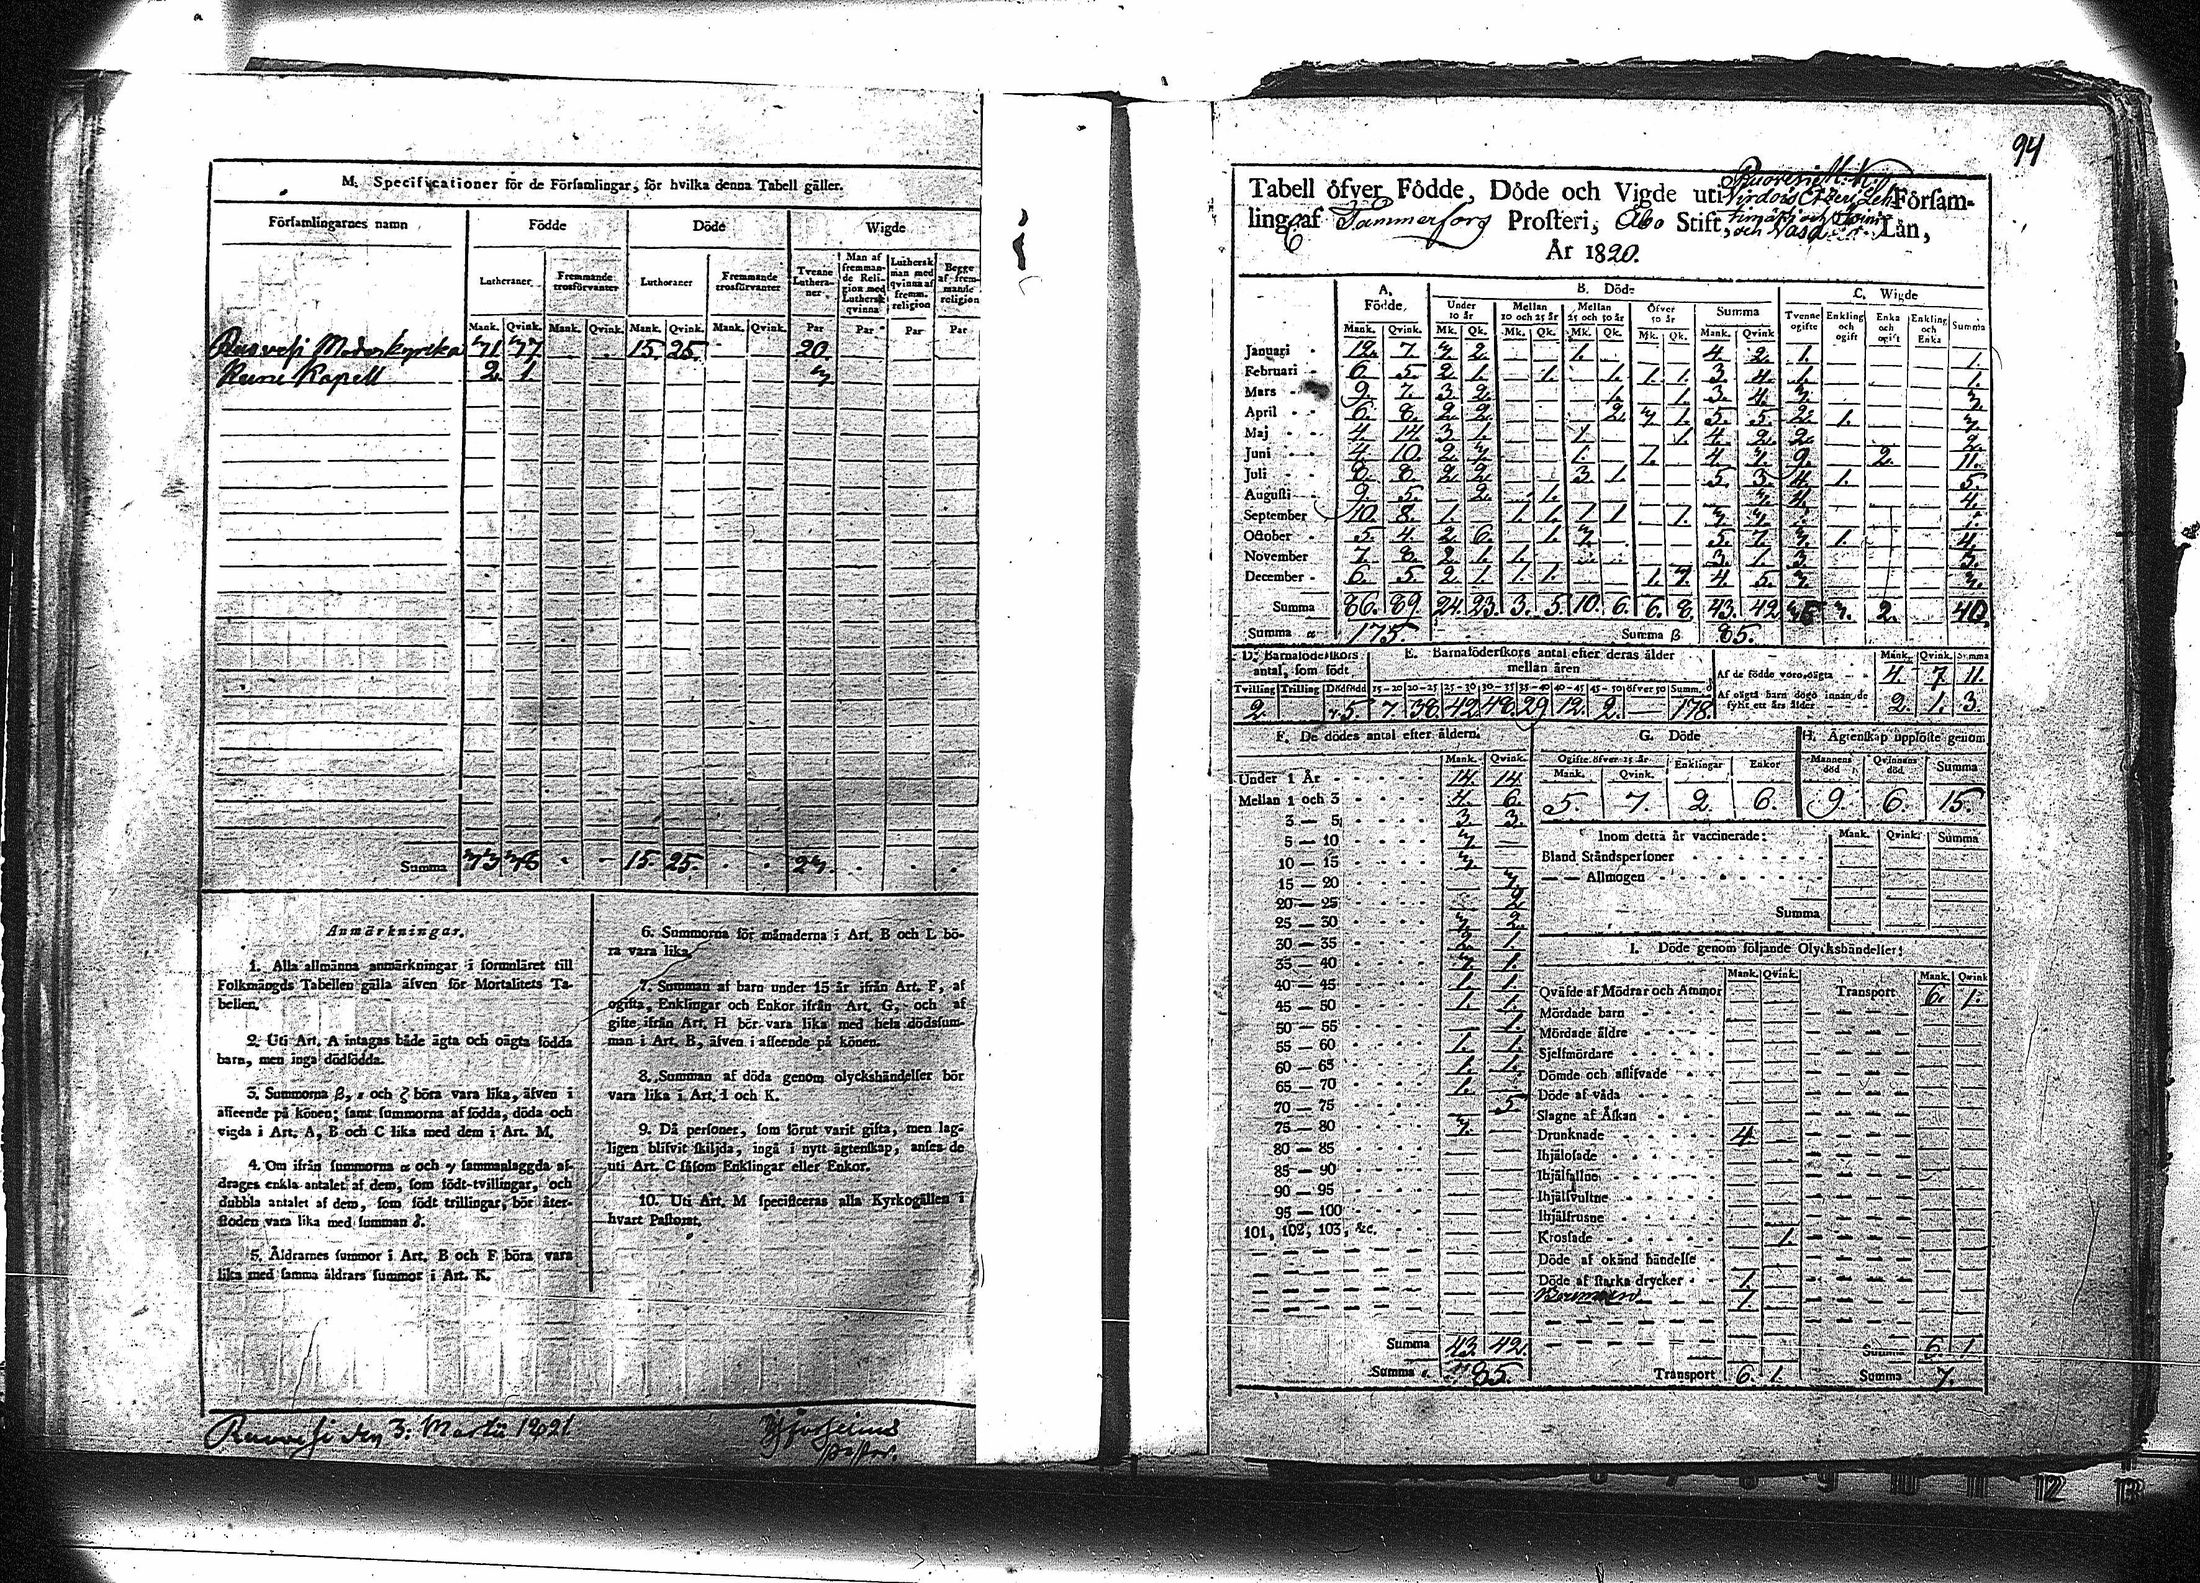 M. Specificationer för de Församlingar, för hvilka denna Tabell gäller.
Församlingarnes namn Födde Döde Wigde
Lutheraner Fremmande trosförvanter Lutheraner Fremmande trosförvanter Tvenne Lutheraner Man af fremmande Religion med Luthersk qvinna Luthersk man med qvinna af fremm. religion Begge af fremmande religion
Mank. Qvink. Mank. Qvink. Mank. Qvink. Mank. Qvink. Par Par Par Par
Ruovesi Moderkyrka 71 77 15. 25. 20.
Kapell 2. 1.
Summa 15. 25.
Anmärkningar.
1. Alla allmänna anmärkningar i formuläret till
Folkmängds Tabellen gälla äfven för Mortalitets Ta-
bellen.
2. Uti Art. A intagas både ägta och oägta födda
barn, men inga dödfödda.
3. Summorna β, ε och ζ böra vara lika, äfven i
afseende på könen; samt summorna af födda, döda och
vigda i Art. A, B och C lika med dem i Art. M.
4. Om ifrån summorna α och γ sammanlaggda af-
drages enkla antalet af dem, som födt tvillingar, och
dubbla antalet af dem, som födt trillingar, bör åter-
stoden vara lika med summan δ.
5. Åldrarnes summor i Art. B och F böra vara
lika med samma åldrars summor i Art. K.
6. Summorna för månaderna i Art. B och L bö-
ra vara lika.
7. Summan af barn under 15 år ifrån Art. F, af
ogifta, Enklingar och Enkor ifrån Art. G, och af
gifte ifrån Art. H bör vara lika med hela dödsum-
man i Art. B, äfven i afseende på könen.
8. Summan af döda genom olyckshändelser bör
vara lika i Art. I och K.
9. Då personer, som förut varit gifta, men lag-
ligen blifvit skiljda, ingå i nytt ägtenskap, anses de
uti Art. C såsom Enklingar eller Enkor.
10. Uti Art. M specificeras alla Kyrkogällen i
hvart Pastorat.
Ruovesi den 3: Martii 1821.
94
Tabell öfver Födde, Döde och Vigde uti Försam-
ling af Tammerfors Prosteri, Åbo Stift, och Vasa Län,
År 1820.
A. Födde. B. Döde C. Wigde
Under 10 år Mellan 10 och 25 år Mellan 25 och 50 år Öfver 50 år Summa Tvenne ogifte Enkling och ogift Enka och ogift Enkling och Enka Summa
Mank. Qvink. Mk. Qk. Mk. Qk. Mk. Qk. Mk. Qk. Mank. Qvink
Januari 12. 7. 2. 1. 4. 2. 1. 1.
Februari 6. 5. 2. 1. 1. 1. 1. 1. 3. 4. 1. 1.
Mars 9. 7. 3. 2. 1. 1. 3. 4.
April 6. 8. 2. 2. 2. 1. 5. 5. 2. 1.
Maj 4. 3. 1. 1. 1. 4. 2. 2. 2.
Juni 4. 10. 2. 1. 4. 9. 2. 11.
Juli 8. 8. 2. 2. 3. 1. 5. 3. 4. 1. 5.
Augusti 9. 5. 2. 1. 4. 4.
September 10. 8. 1. 1. 1. 1 1 1.
October 5. 4. 2. 6. 1. 5. 7. 1. 4.
November 7. 8. 2. 1. 1. 3. 1. 3. 3.
December 6. 5. 2. 1. 1. 1. 1. 4. 5.
Summa 86. 89. 24. 23. 3. 5. 10. 6. 6. 8. 43. 42. 2. 40.
Summa α 175. Summa β 85.
D. Barnaföderskors antal, som födt E. Barnaföderskors antal efter deras ålder mellan åren Mank. Qvink. Summa
Af de födde voro oägta 4. 7. 11.
Tvilling Trilling Dödfödd 15-20 20-25 25-30 30-35 35-40 40-45 45-50 öfver 50 Summ. δ
Af oägta barn dogo innan de fyllt ett års ålder 2. 1. 3.
2. 5. 7. 38. 42. 48. 29. 12. 2. 178.
F. De dödes antal efter åldern. G. Döde H. Ägtenskap upplöste genom
Mank. Qvink. Ogifte öfver 15 år Enklingar Enkor Mannens död Qvinnans död. Summa
Mank. Qvink.
5. 7. 2. 6. 9. 6. 15.
Under 1 År 14. 14.
Mellan 1 och 3 4. 6.
3 — 5 3. 3.
5 — 10
10 — 15
15 — 20
20 — 25 2
25 — 30 2.
30 — 35 2. 1.
35 — 40 1.
40 — 45 1. 1.
45 — 50 1. 1.
50 — 55 1.
55 — 60 1. 1.
60 — 65 1. 1.
65 — 70 1.
70 — 75 5.
75 — 80
80 — 85
85 — 90
90 — 95
95 — 100
101, 102, 103, &c.
Summa 43. 42.
Summa ε. 85.
Inom detta år vaccinerade: Mank. Qvink. Summa
Bland Ståndspersoner
— — Allmogen
Summa
I. Döde genom följande Olyckshändelser:
Mank. Qvink. Mank. Qvink
Qväfde af Mödrar och Ammor Transport 6. 1.
Mördade barn
Mördade äldre
Sjelfmördare
Dömde och aflifvade
Döde af våda
Slagne af Åskan
Drunknade 4.
Ihjälosade
Ihjälfallne
Ihjälsvultne
Ihjälfrusne
Krossade 1.
Döde af okänd händelse
Döde af starka drycker 1.
1.
Summa 6. 1.
Transport 6. 1. Summa 7.
6 7 8 9 10 11 12 13